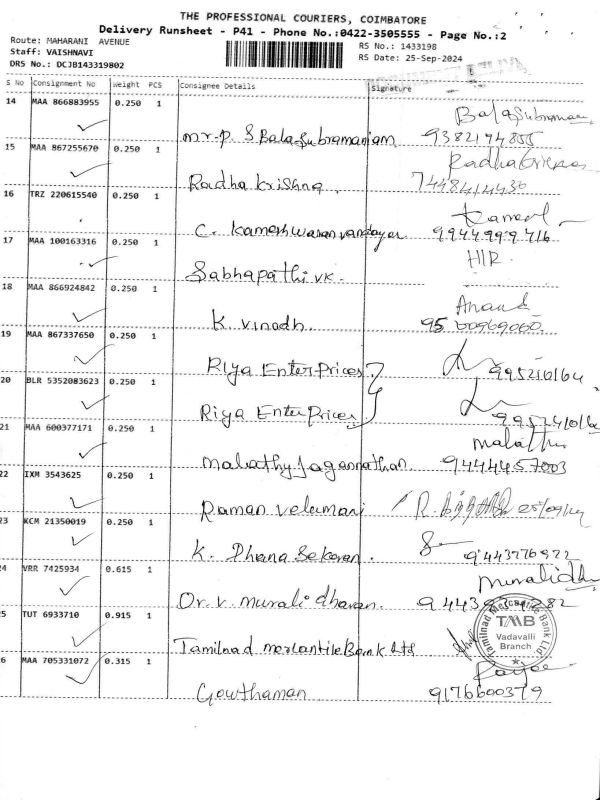 THE PROFESSIONAL COURIERS, COIMBATORE
Delivery Runsheet - P41 - Phone No.:0422-3505555 - Page No.:2
Route: MAHARANI AVENUE
Staff: VAISHNAVI
DRS No.: DCJB143319802
RS No.: 1433198
RS Date: 25-Sep-2024
S No Consignment No Weight PCS Consignee Details Signature
14 MAA 866883955 0.250 1
Mr-P. S Balasubramaniam Balasubraman 9382174855
15 MAA 867255670 0.250 1
Radha krishna,
16 TRZ 220615540 0.250 1
C. Kameshwaran vandayar
17 MAA 100163316 0.250 1
Sabhapathi vk. HIR
18 MAA 866924842 0.250 1
K. vinodh. Anand
19 MAA 867337650 0.250 1
Riya EnterPrices
20 BLR 5352083623 0.250 1
Riya EnterPrices
21 MAA 600377171 0.250 1
malathy Jagannathan 9444457003
22 IXM 3543625 0.250 1
Raman velumani
23 KCM 21350019 0.250 1
K. Dhana Sekaran. 9443776922
24 VRR 7425934 0.615 1
Dr. v. murali dharan. Muralidh
25 TUT 6933710 0.915 1
Tamilnad mercantile Bank Ltd
Tamilnad Mercantile Bank Ltd
TMB
Vadavalli
Branch
26 MAA 705331072 0.315 1
Gowthaman 9176600379